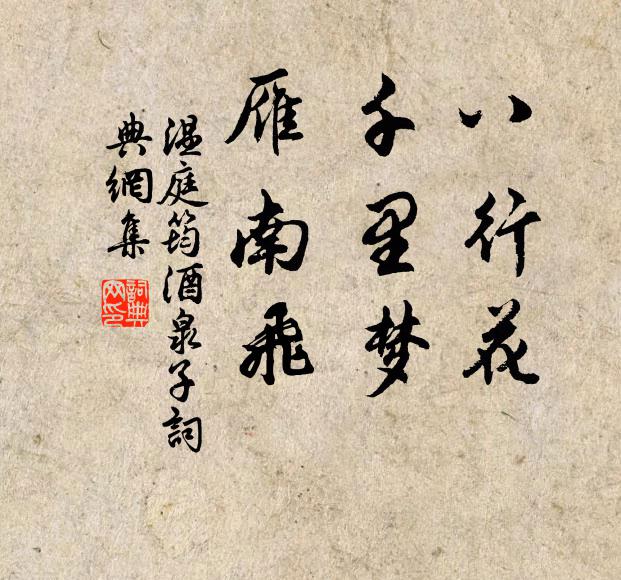 八行花
千里梦
雁南飛
温庭筠酒泉子詞
典網集
詞典
网印